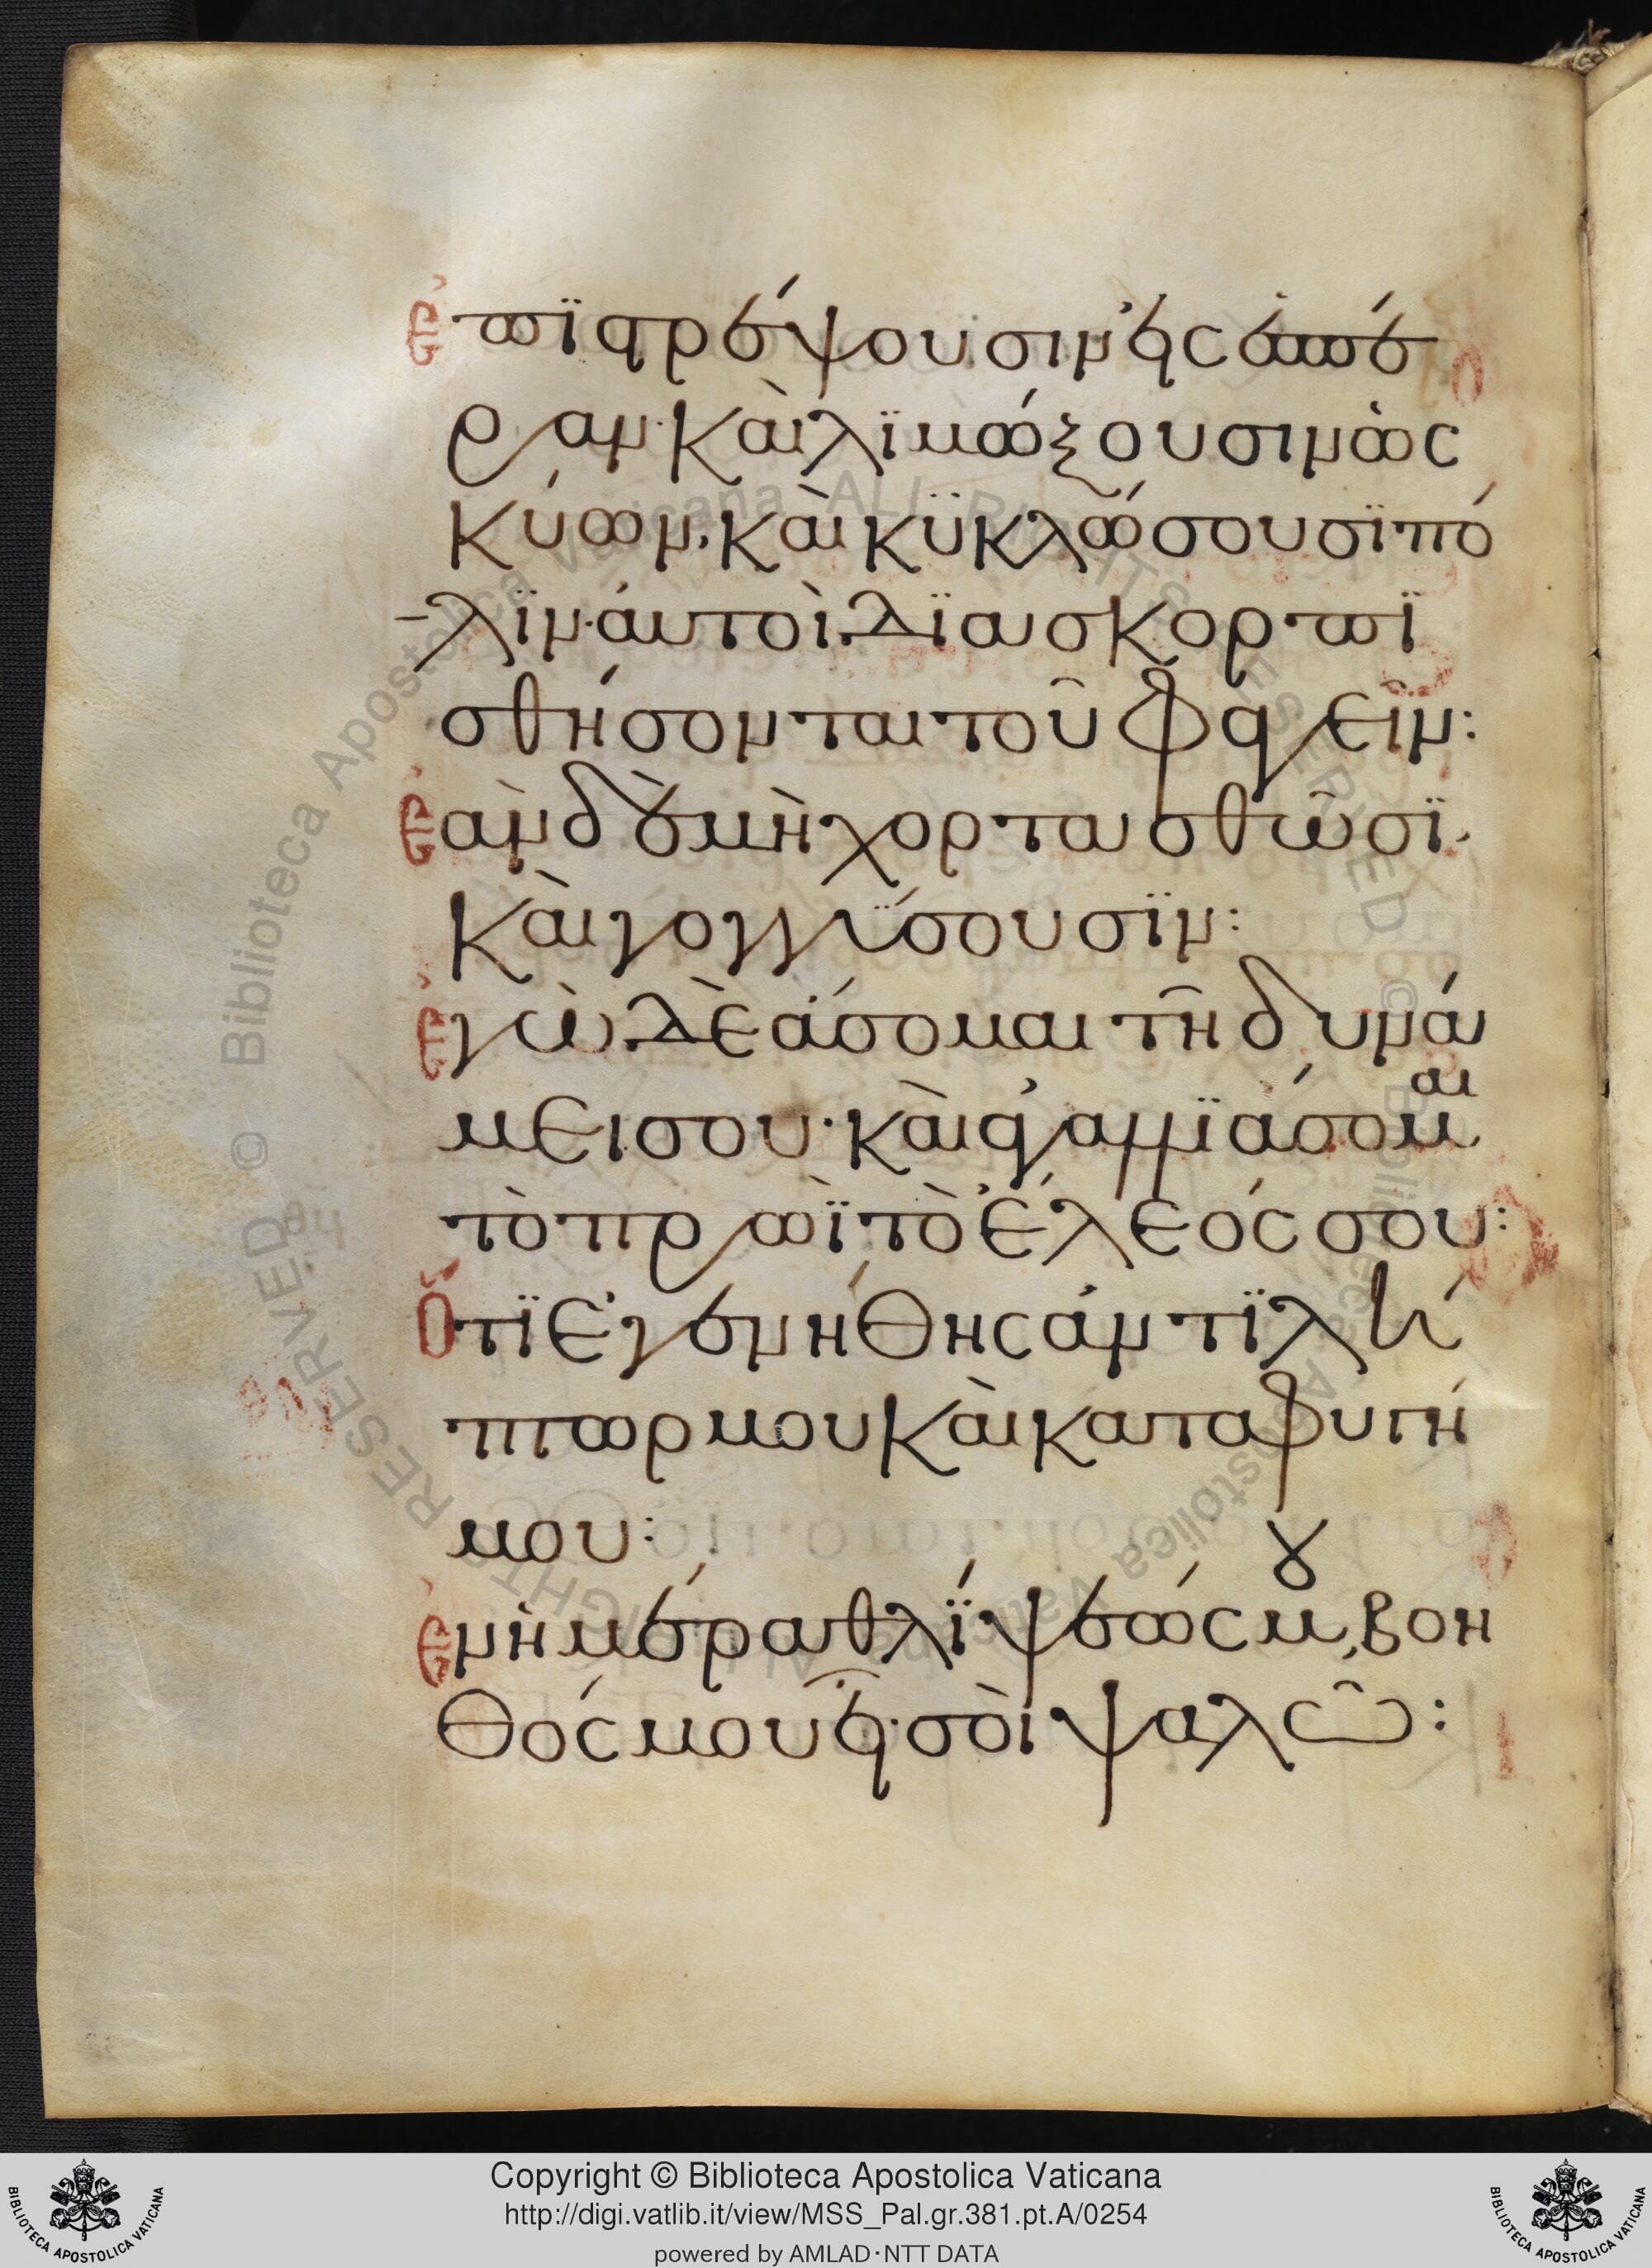 ἐπϊστρέψουσιν ἐς ἑσπέ
ραν· καὶ λϊμώξουσιν ὡς
κύων, καὶ κϋκλώσουσϊ πό
λϊν· ἀυτοὶ δϊασκορπϊ
σθήσονται τοῦ φαγεῖν:
ἐὰν δὲ μὴ χορτασθῶσϊ.
καὶ γογγΰσουσϊν:
ἐγὼ δὲ ἄσομαι τῆ δυνά
μει σου· καὶ ἀγαλλϊάσομαι
τὸ πρωῒ τὸ ἔλεός σου:
ὅτϊ ἐγενήθης ἀντϊλή
πτωρ μου καὶ καταφυγή
μου:
ἐν ἡμέρα θλΐψεώς μου, βοη
θός μου εἶ· σοὶ ψαλῶ:
Copyright © Biblioteca Apostolica Vaticana
http://digi.vatlib.it/view/MSS_Pal.gr.381.pt.A/0254
powered by AMLAD·NTT DATA
BIBLIOTECA APOSTOLICA VATICANA
BIBLIOTECA APOSTOLICA VATICANA